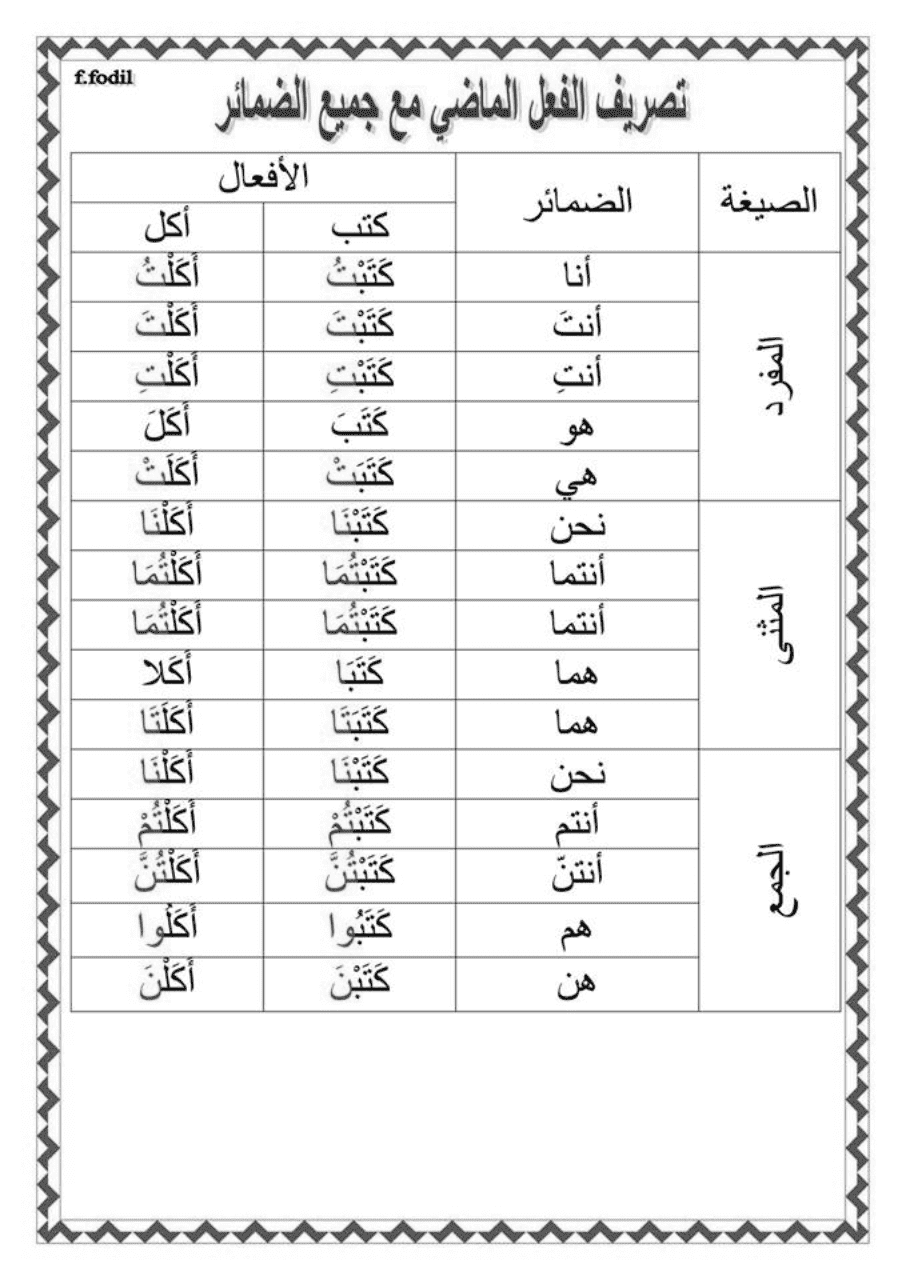 f.fodil
تصريف الفعل الماضي مع جميع الضمائر
الصيغة الضمائر الأفعال
كتب أكل
المفرد
أنا كَتَبْتُ أَكَلْتُ
أنتَ كَتَبْتَ أَكَلْتَ
أنتِ كَتَبْتِ أَكَلْتِ
هو كَتَبَ أَكَلَ
هي كَتَبَتْ أَكَلَتْ
المثنى
نحن كَتَبْنَا أَكَلْنَا
أنتما كَتَبْتُمَا أَكَلْتُمَا
أنتما كَتَبْتُمَا أَكَلْتُمَا
هما كَتَبَا أَكَلا
هما كَتَبَتَا أَكَلَتَا
الجمع
نحن كَتَبْنَا أَكَلْنَا
أنتم كَتَبْتُمْ أَكَلْتُمْ
أنتنّ كَتَبْتُنَّ أَكَلْتُنَّ
هم كَتَبُوا أَكَلُوا
هن كَتَبْنَ أَكَلْنَ